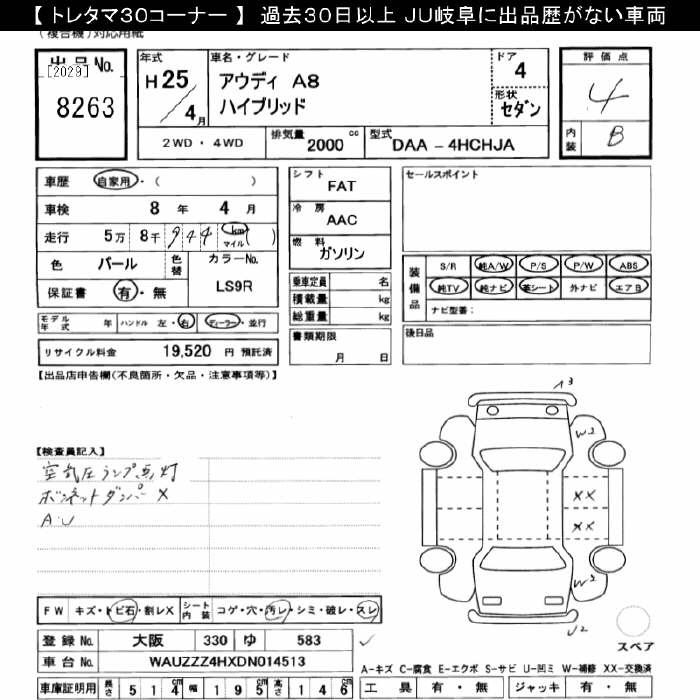 【トレタマ30コーナー】 過去30日以上 JU岐阜に出品歴がない車両
(複合機)対応用紙
出品No.
[2029]
8263
年式
H25/4月
車名・グレード
アウディ A8
ハイブリッド
ドア
4
形状
セダン
評価点
4
内装
B
2WD・4WD
排気量 2000 cc
型式 DAA-4HCHJA
車歴 自家用・( )
車検 8年 4月
走行 5万 8千 944 km マイル ( )
色 パール
色替
カラーNo.
LS9R
保証書 有・無
シフト
FAT
冷房
AAC
燃料
ガソリン
乗車定員 名
積載量 kg
総重量 kg
セールスポイント
装備品
S/R 純A/W P/S P/W ABS
純TV 純ナビ 革シート 外ナビ エアB
ナビ型番:
モデル年式 年 ハンドル 左・右 ディーラー・並行
リサイクル料金 19,520 円 預託済
書類期限
月 日
後日品
【出品店申告欄(不良箇所・欠品・注意事項等)】
【検査員記入】
空気圧ランプ点灯
ボンネットダンパーX
A・U
A3
W2
XX
XX
W3
U2
スペア
FW キズ・トビ石・割レX
シート内装 コゲ・穴・汚レ・シミ・破レ・スレ
登録No. 大阪 330 ゆ 583
車台No. WAUZZZ4HXDN014513
A-キズ C-腐食 E-エクボ S-サビ U-凹ミ W-補修 XX-交換済
車庫証明用 長さ 514cm 幅 195cm 高さ 146cm
工具 有・無 ジャッキ 有・無